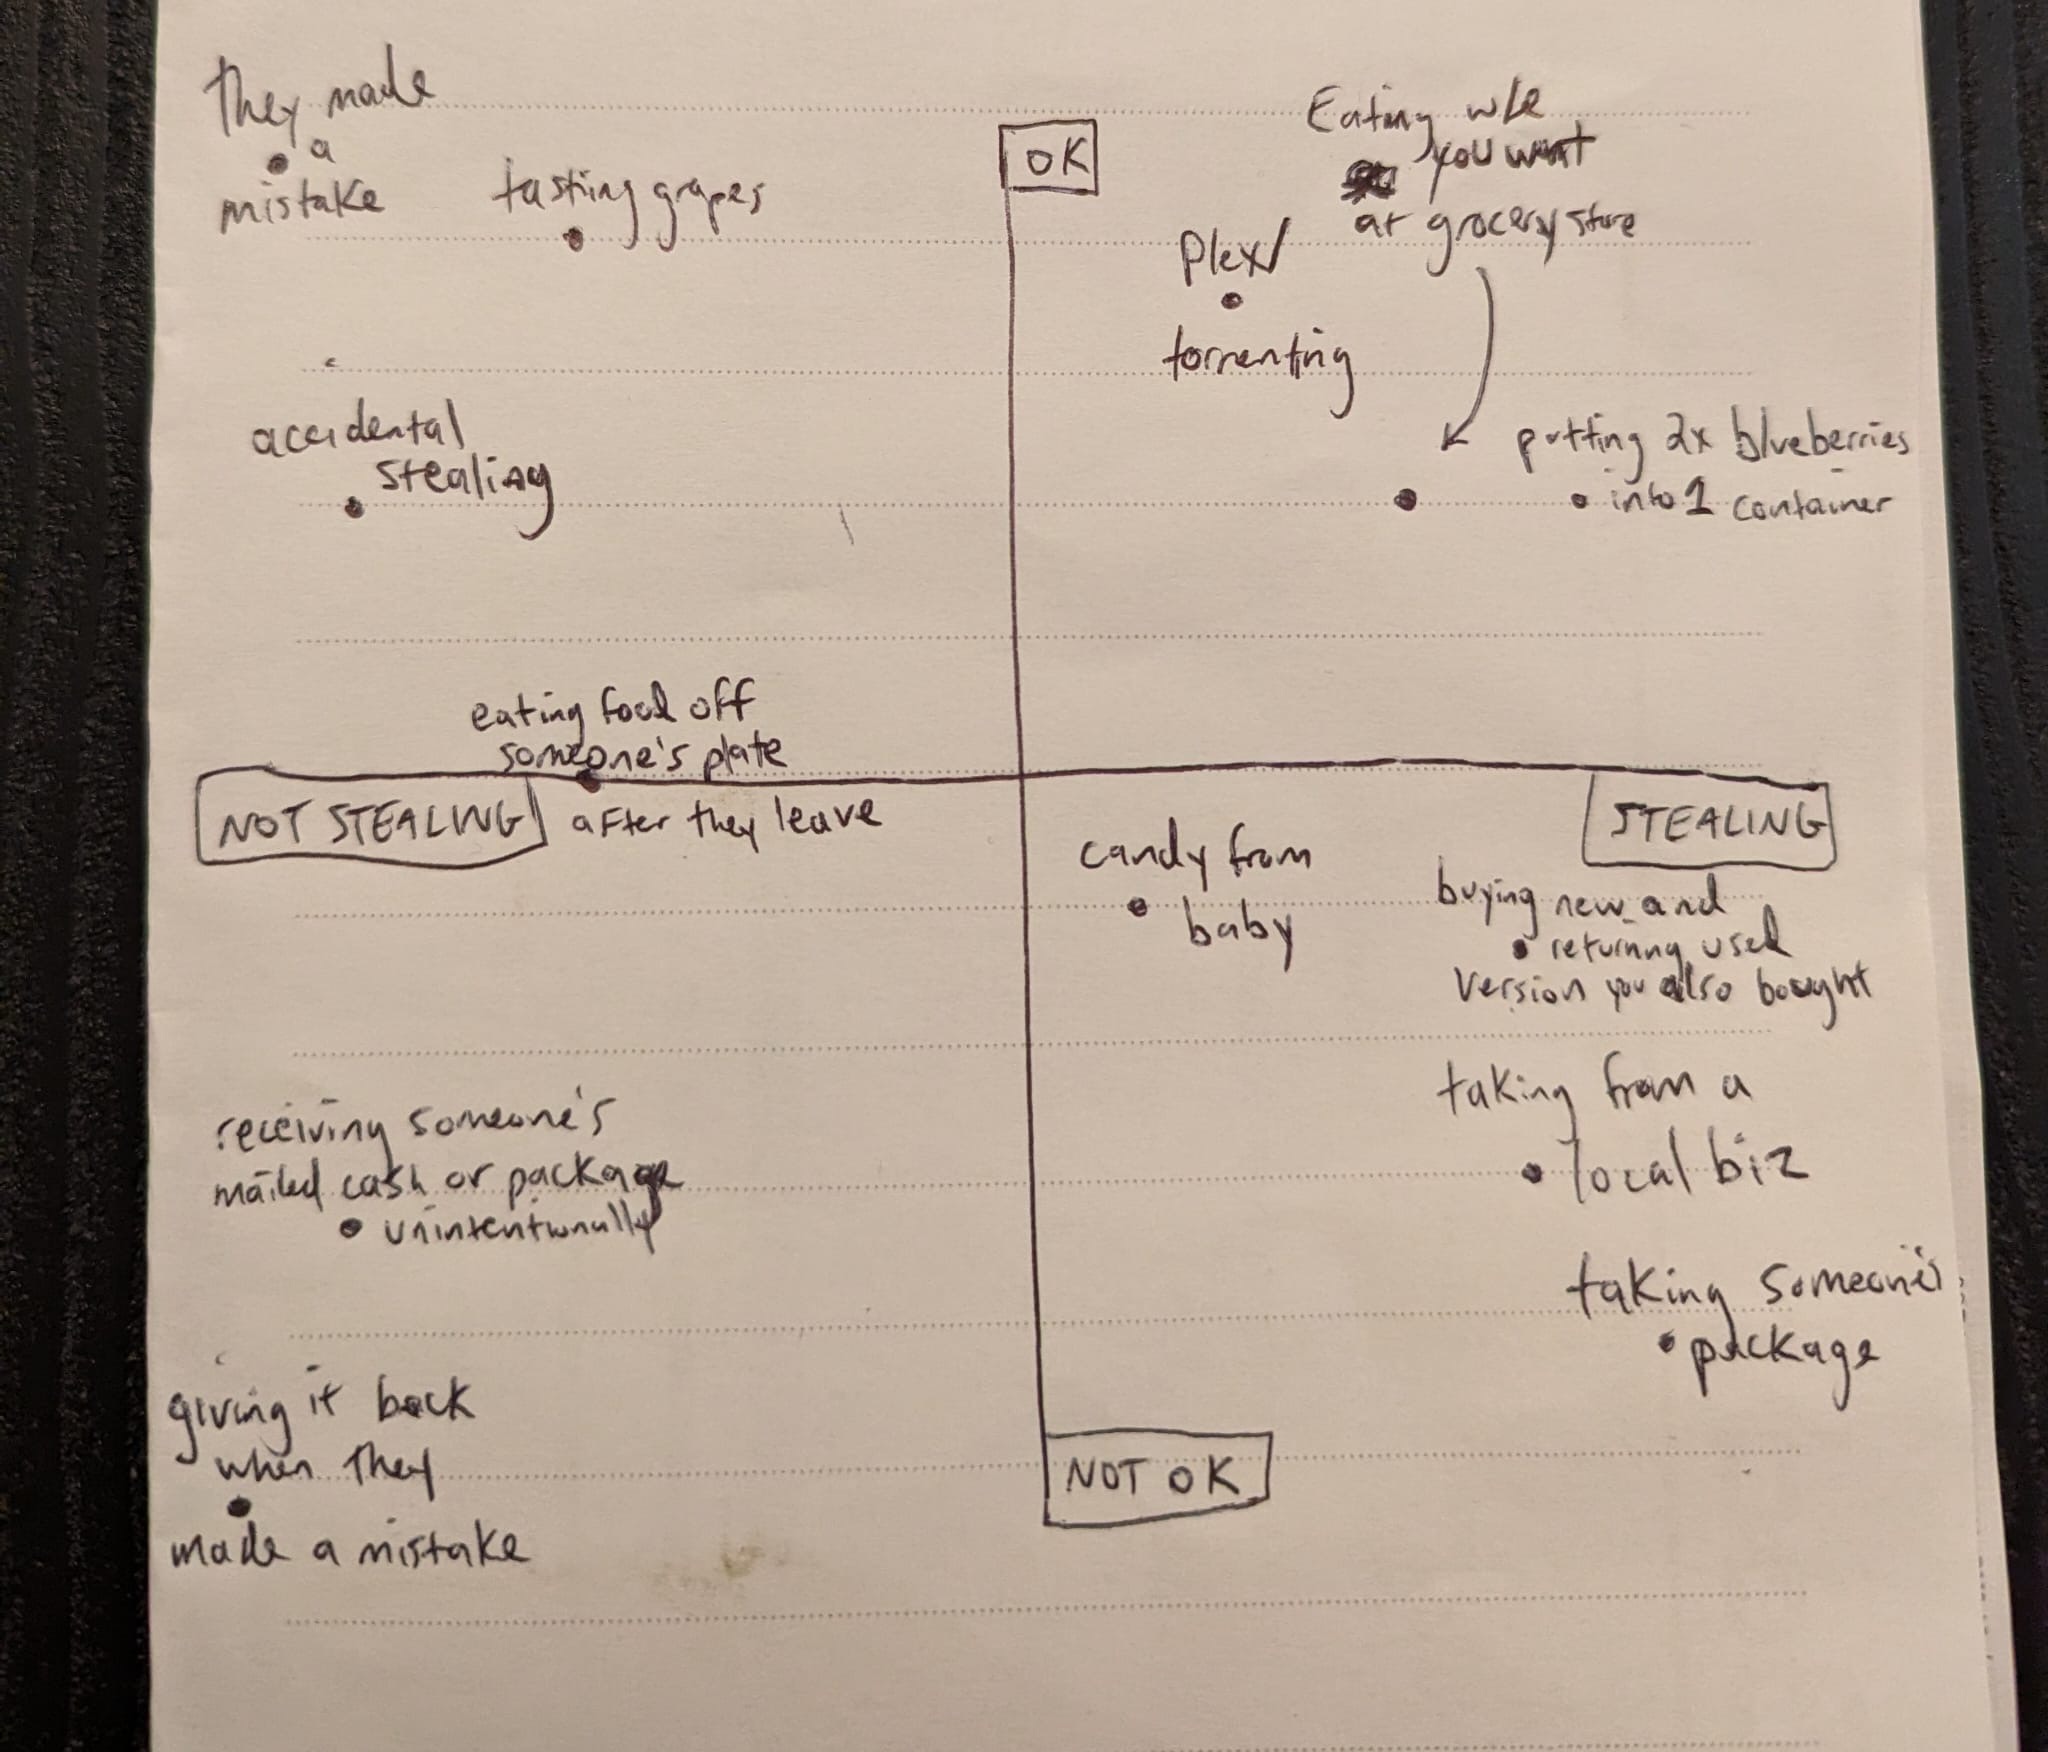 They made
a
mistake
tasting grapes
OK
Eating w/e
you want
at grocery store
Plex/
torrenting
accidental
stealing
putting 2x blueberries
into 1 container
eating food off
someone's plate
after they leave
NOT STEALING
STEALING
candy from
baby
buying new and
returning used
version you also bought
receiving someone's
mailed cash or package
unintentionally
taking from a
local biz
taking someone's
package
giving it back
when they
made a mistake
NOT OK